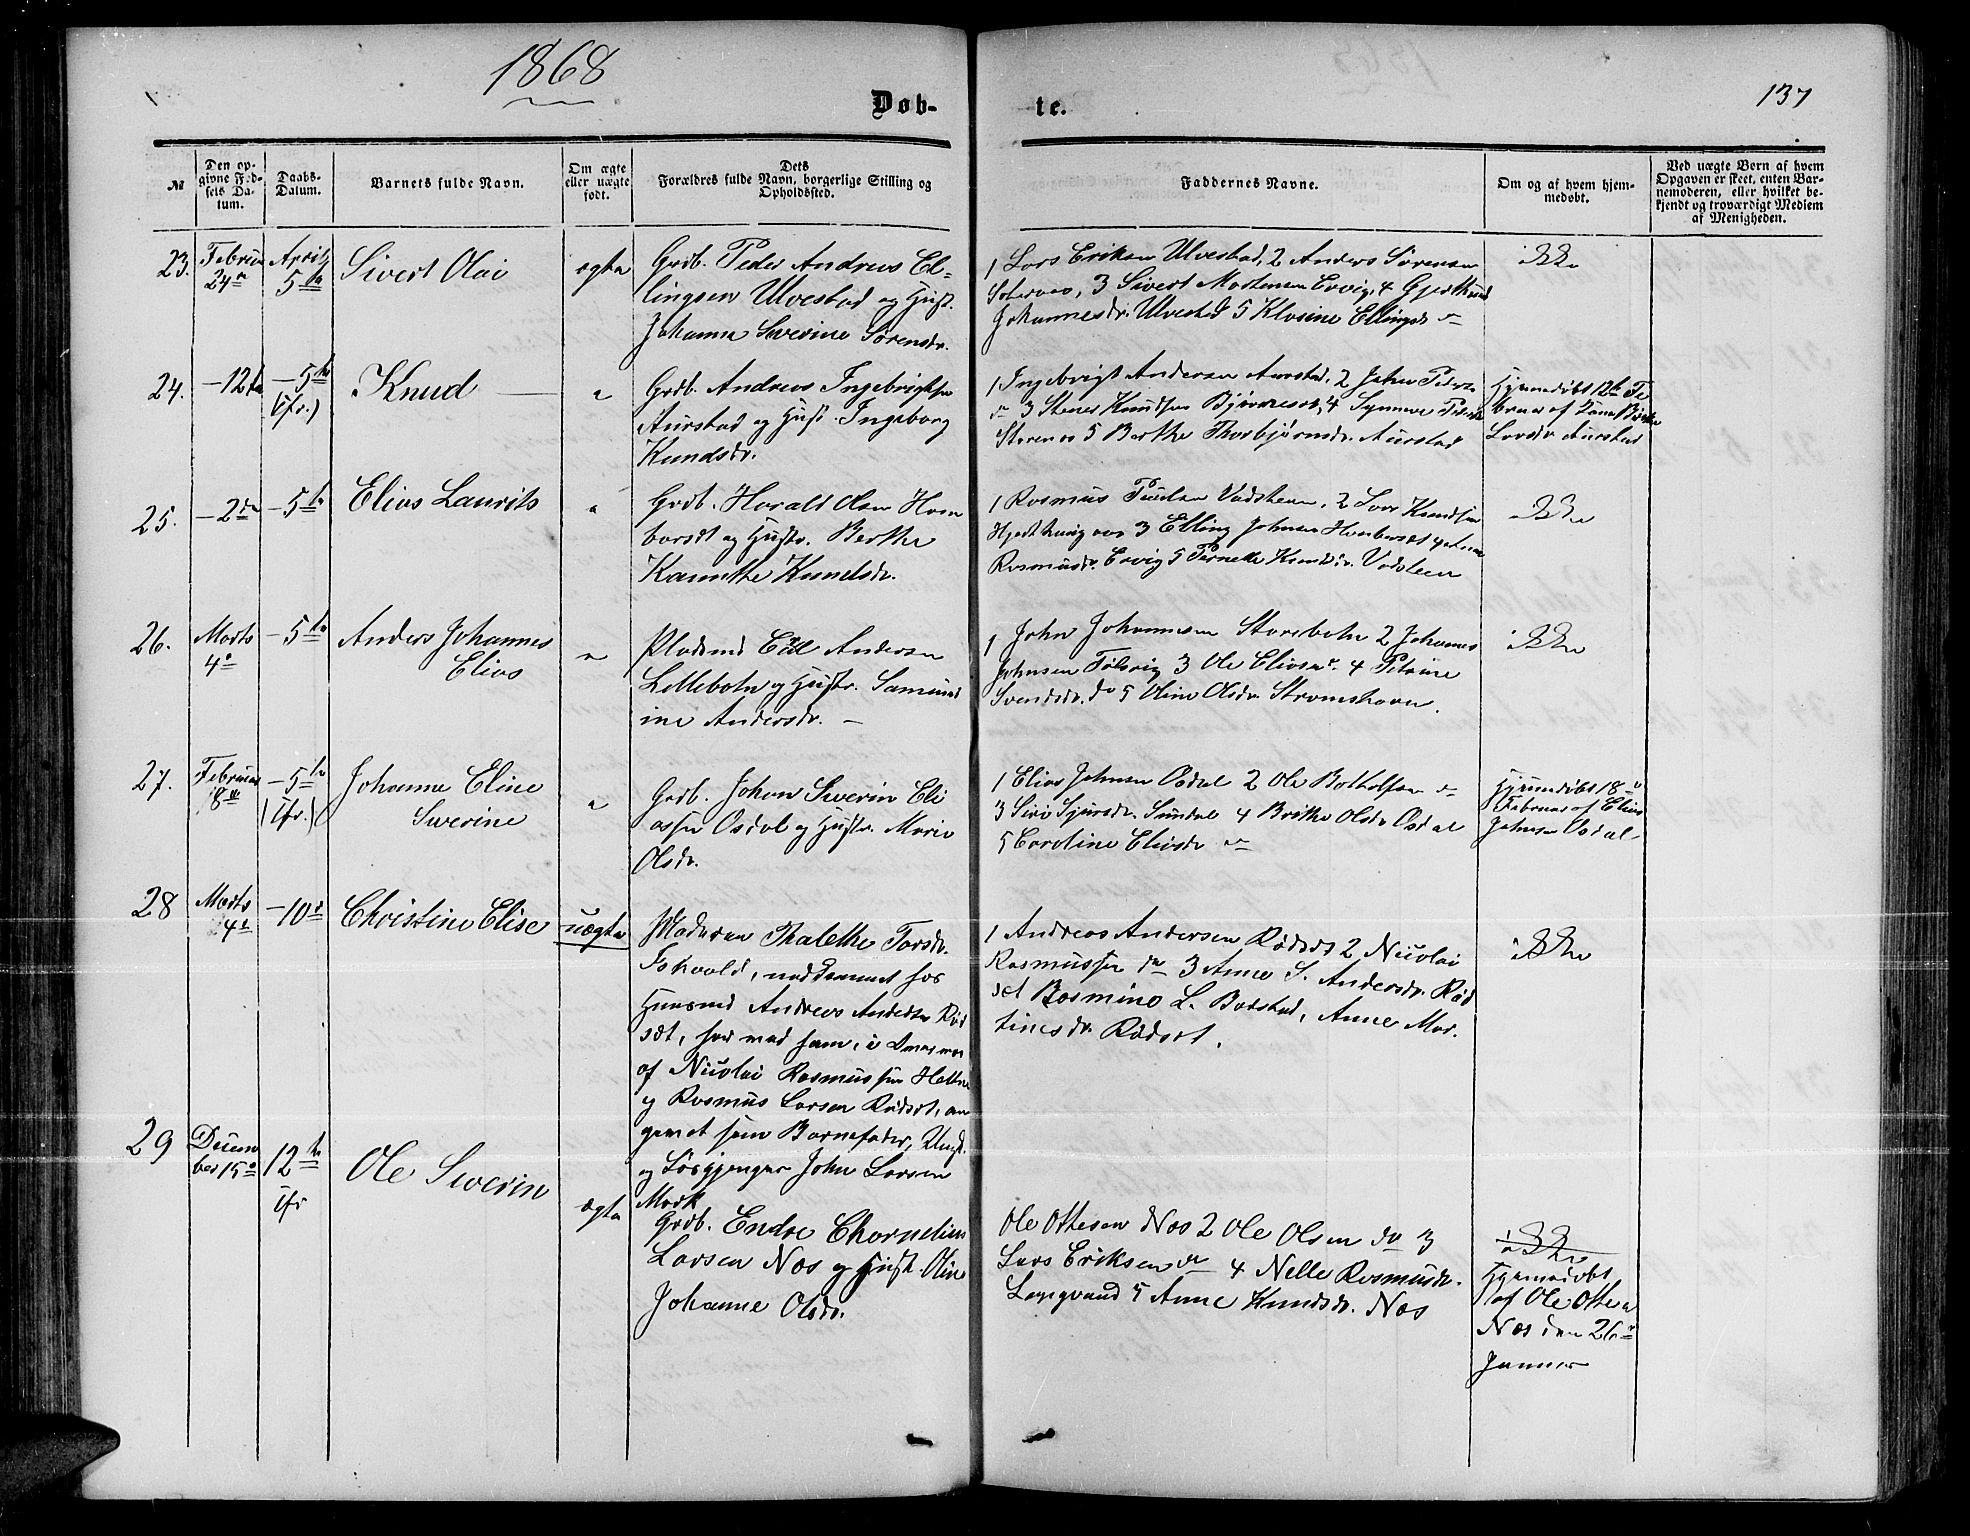 1868
137
Døb-
te.
№
Den op-
givne Fød-
sels Da-
tum.
Daabs-
Datum.
Barnets fulde Navn.
Om ægte
eller uægte
født.
Dets
Forældres fulde Navn, borgerlige Stilling og
Opholdssted.
Faddernes Navne.
Om og af hvem hjem-
medøbt.
Ved uægte Børn af hvem
Opgaven er skeet, enten Bar-
nemoderen, eller hvilket be-
kjendt og troværdigt Medlem
af Menigheden.
23.
Februar
24de
April
5te
Sivert Olai
ægte
Grdb. Peder Andreas El-
lingsen Ulvestad og Hust.
Johanne Severine Sørensdr.
1 Lars Eriksen Ulvestad, 2 Anders Sørensen
3 Sivert Mortensen Ervig, 4 Gjertrud
Johannesdr. Ulvestad 5 Klasine Ellingsdr do
ikke
24.
-12te
-5te
(Ifr.)
Knud
"
Grdb. Andreas Ingebrigtsen
Aurstad og Hust. Ingeborg
Knudsdr.
1 Ingebrigt Andersen Aurstad, 2 John Peders
do 3 Stener Knudsen 4 Synneve Peders
5 Berthe Thorbjørnsdr. Aurstad
Hjemmedøbt 12te Fe
bruar af
Larsdr. Aurstad
25.
-2den
-5te
Elias Laurits
"
Grdb. Harald Olsen Horn
og Hustr. Berthe
Karinthe Knudsdr.
1 Rasmus Vadsteen, 2 Lars Knudsen
3 Elling Johnsen
Rasmusdr. Ervig 5 Pernelle Knudsdr. Vadsteen
ikke
26.
Marts
4de
-5te
Anders Johannes
Elias
"
Pladsmd Andersen
Lillebotn og Hustr. Samuel
ine Andersdr. -
1 John Johannesen Storebotn 2 Johannes
Johnsen 3 Ole Eliasen do. 4 Petrine
Svendsdr. do 5 Oline Olsdr. Strømshavn.
ikke
27.
Februar
18de
-5te
(Ifr.)
Johanne Eline
Severine
"
Grdb. Johan Severin Eli
assen Osdal og Hustr. Marie
Olsdr.
1 Elias Johnsen Osdal 2 Ole Botholfsen do
3 Siri Sjursdr. Sundal 4 Brithe Olsdr Osdal
5 Caroline Eliasdr do
Hjemmedøbt 18de
Februar af Elias
Johnsen Osdal
28
Marts
4de
-10de
Christine Elise
uægte
Moderen Thalethe Torsdr.
nedkommet hos
Huusmd Andreas Andersen Rød
sæt, har med ham,
af Nicolai Rasmussen
og Rasmus Larsen Rødset, an
givet som Barnefader, Ungk.
og Løsgjænger John Larsen
Mork
1 Andreas Andersen Rødset 2 Nicolai
Rasmussen do 3 Anne S. Andersdr. Rød
set Rasmine L. Botstad, Anne Mar.
tinesdr. Rødset.
ikke
29
Decem
ber 15de
12te
Ifr
Ole Severin
ægte
Grdb. Endre Chornelius
Larsen Næs og Hust. Oline
Johanne Olsdr.
Ole Ottesen Næs 2 Ole Olsen do 3
Lars Eriksen do 4 Nelle Rasmusdr.
Langvand 5 Anne Knudsdr. Næs
ikke
Hjemmedøbt
af Ole Ottesen
Næs den 26de
Januar